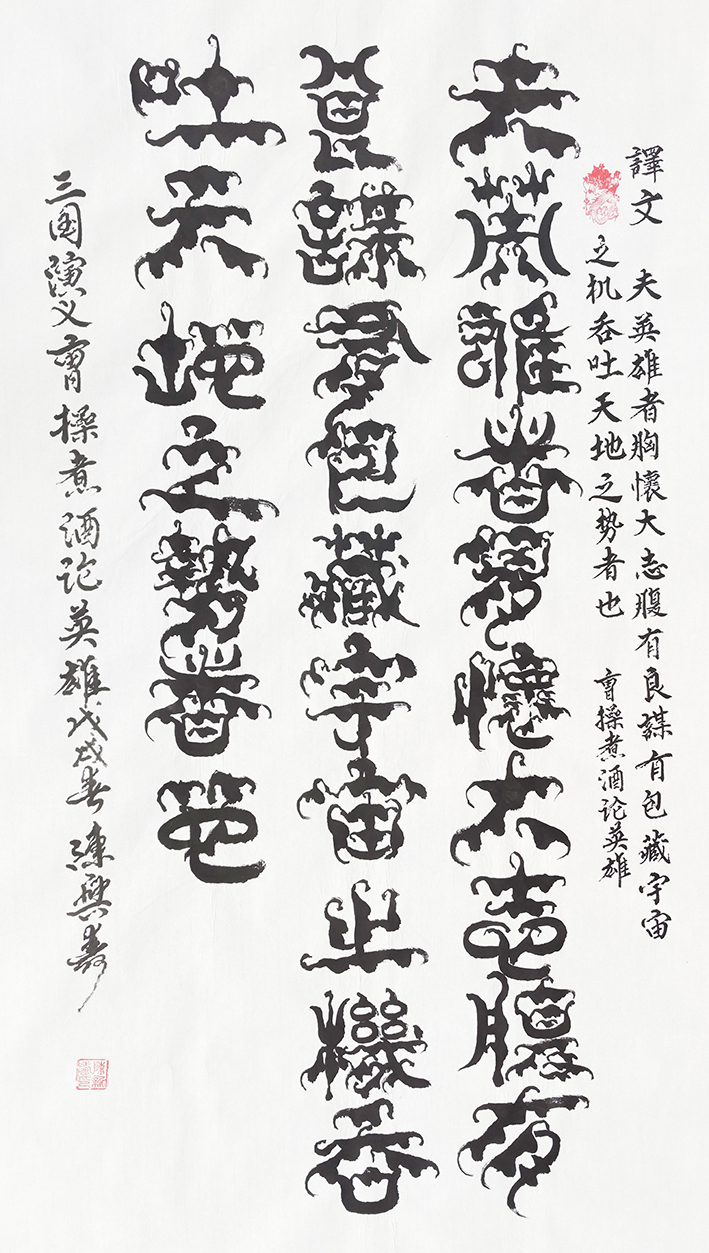 譯文 夫英雄者胸懷大志腹有良謀有包藏宇宙
之机吞吐天地之势者也 曹操煮酒论英雄
夫英雄者胸懷大志腹有
良謀有包藏宇宙之機吞
吐天地之勢者也
三国演义曹操煮酒论英雄戊戌春陳興壽